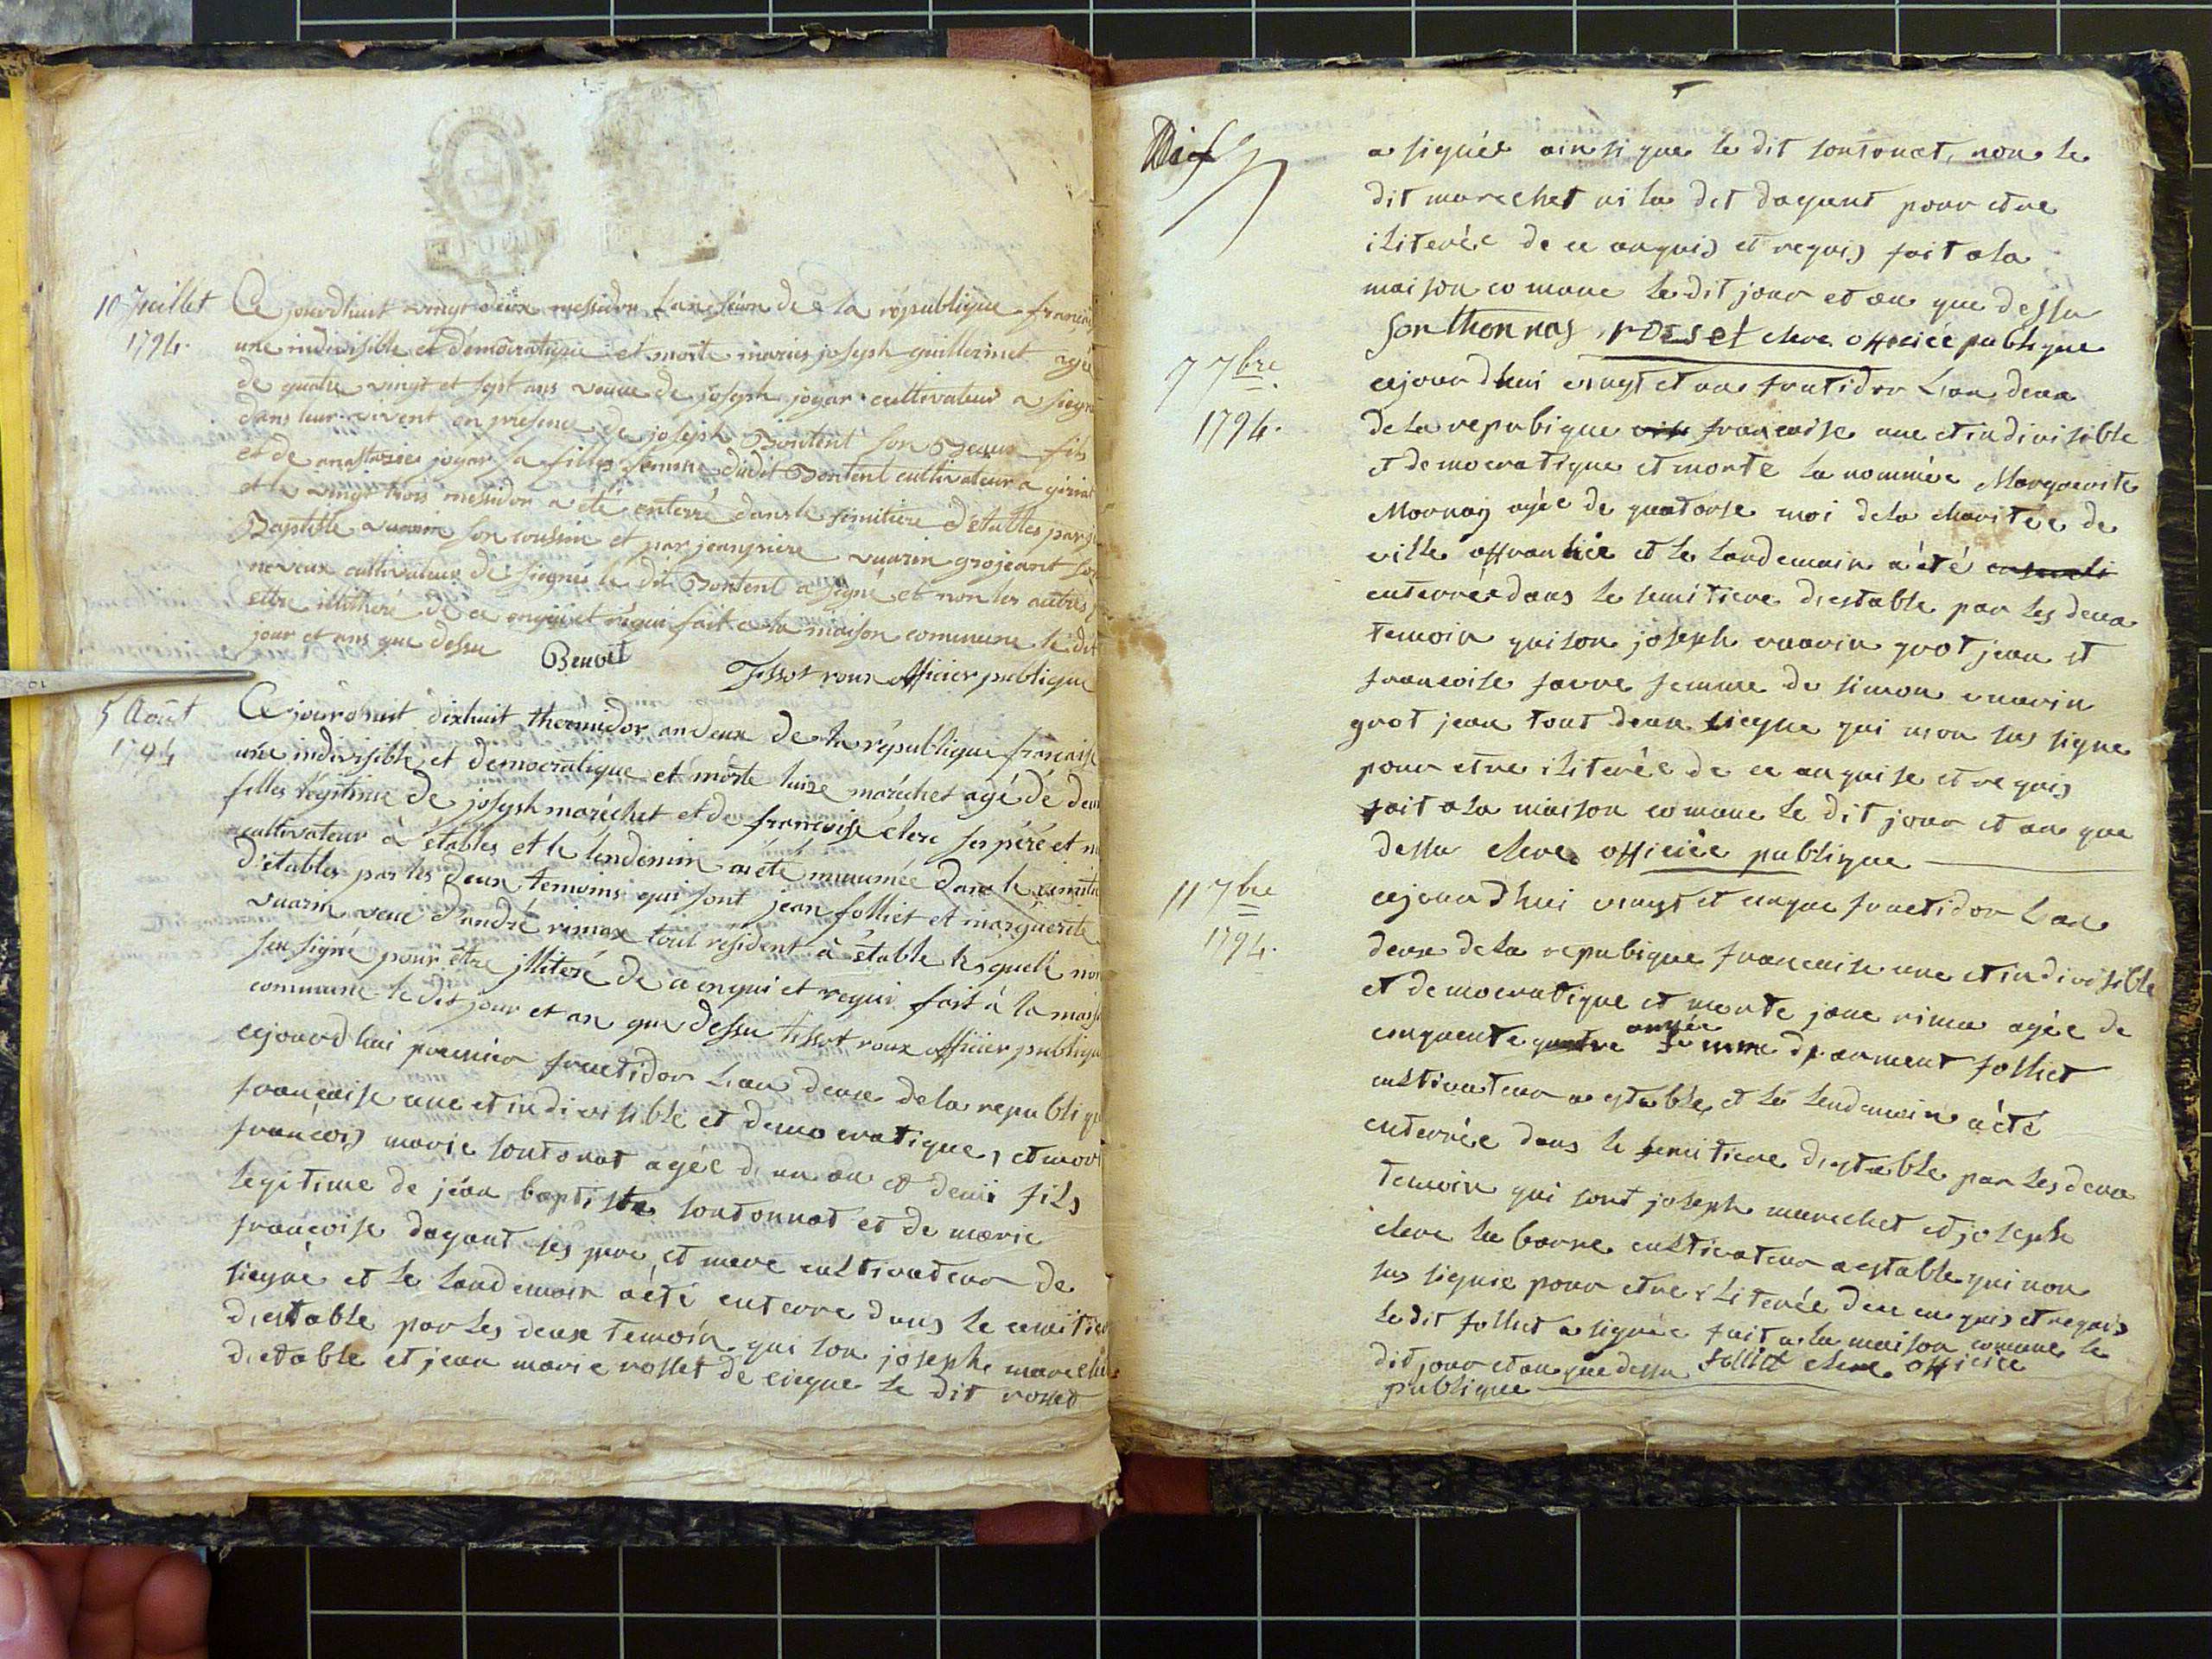 10 Juillet
1794.
Ce jourdhuit vingt deux messidor lan séon de la république françai
une indivisible et démocratique et morte maries joseph guillermet agée
de quatre vingt et sept ans veuve de joseph jogar cultivateur a siegne
dans leur vivent en presence de joseph Bontent son Beaux fils
et de anastasie jogar sa filles femme dudit Bontent cultivateur a
et le vingt trois messidor a été enterré dans le simitiere d'etables par
Baptiste vuarin son coussin et par jeanpiere vuarin grojeant son
neveux cultivateur de siegne le dit Bontent a signé et non les autres
ettre illitheré de ce enqui et requi fait a la maison commune le dit
jour et ans que dessu Benoit
Tissot roux officier publique
5 Août
1794
Ce jourdhuit dixhuit thermidor an deux de la république française
une indivisible et démocratique et morte luize maréchet agé de deux
filles légitime de joseph maréchet et de françoise clerc ses pére et m
cultivateur à étables et le lendemin aiété innumée dans le
d'etables par les deux temoins qui sont jean folliet et marguerite
vuarin veue d'andré rimax tout résident à étable lesquels non
seu signé pour être illiteré de ce enqui et requi fait à la mais
commune le dit jour et an que dessu tissot roux officier publique
cejourdhui premier fructidor Lan deux de la republique
françaisse une et indivisible et democratique, et mort
françois marie sontonat agée d, un an et demi fils
legitime de jéan baptiste sontonnat et de marie
françoise dagant ses pere, et mere cultivateur de
siegne et le landemain aété enterre dans le cemitier
d,estable par les deux temoin qui son joseph marechet
d,etable et jean marie rosset de ciegne le dit rosset
a signée ainsi que le dit sontonat, non le
dit marechet ni la dit dagant pour etre
iliterée de ce anquis et requis fait a la
maison comune le dit jour et an que dessu
Sonthonnas, rosset clerc officiée publique
7 7bre
1794.
cejourdhui vingt et un frutidor Lan deux
de la repubique françaisse une et indivisible
et democratique et morte la nommée Marguerite
Mornay agée de quatorse moi dela charitée de
ville affranhie et le landemain a été enseveli
enterrée dans le semitiere d,estable par les deux
temoin qui son joseph vuarin grot jean et
françoise favre femme de simon vuarin
grot jean tout deux siegne qui non sus signe
pour etre iliterée de ce anquise et requis
fait a la maison comune le dit jour et an que
dessu clerc officiée publique
11 7bre
1794.
cejourdhui vingt et cinque fructidor Lan
deux de la repubique françaisse une et indivisible
et democratique et morte jane rima agée de
année
cinquente quatre femme d, armand folliet
cultivateur a estable, et le lendemain a été
enterrée dans le semitiere d,estable par les deux
temoin qui sont joseph marechet et joseph
clerc la barre cultivateur a estable qui non
sus signie pour etre iliterée de ce enquis et requis
le dit folliet a signée fait a la maison comune le
dit jour et an que dessu folliet clerc officiée
publique